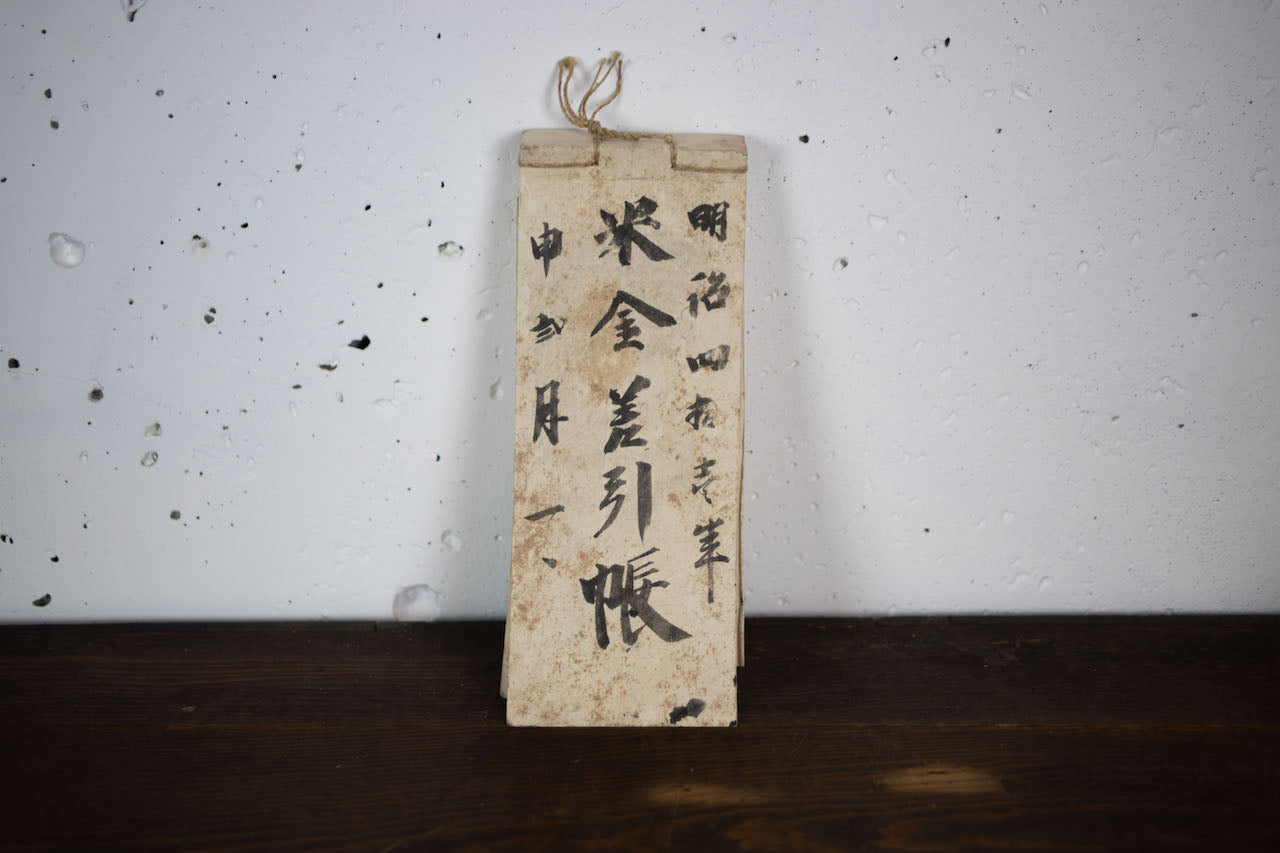 明治四拾壱年
米金差引帳
申弐月一、